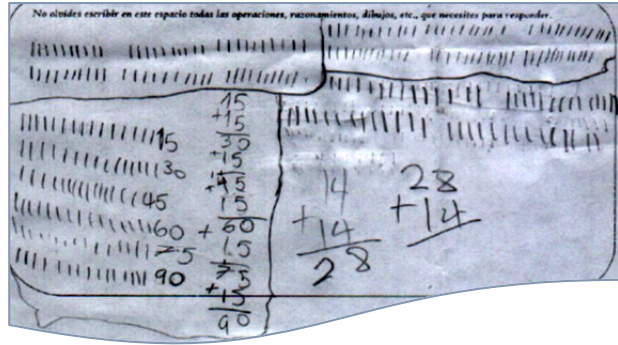 No olvides escribir en este espacio todas las operaciones, razonamientos, dibujos, etc., que necesites para responder.
15
30
45
60
75
90
15
+15
30
+15
45
15
+60
15
75
+15
90
14
+14
28
28
+14